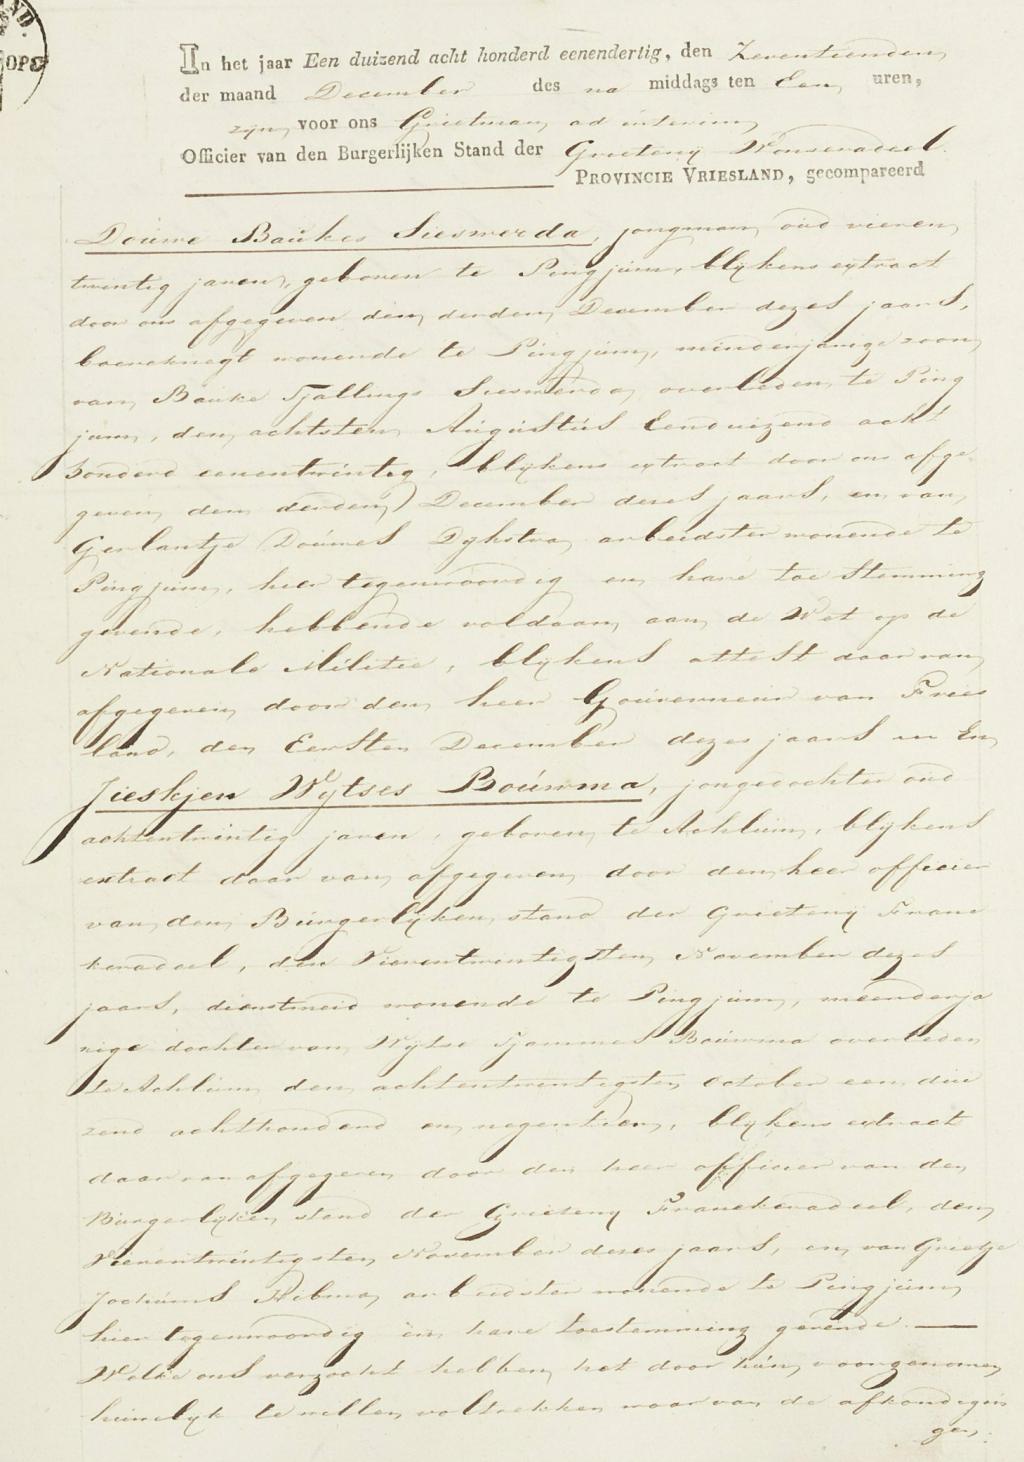 ND.
OPE
In het jaar Een duizend acht honderd eenendertig, den Zeventienden
der maand December des na middags ten Een uren,
zijn voor ons Grietman ad interim
Officier van den Burgerlijken Stand der Grieteny Wonseradeel.
PROVINCIE VRIESLAND, gecompareerd
Douwe Baukes Sieswerda, jongman, oud vieren
twintig jaren, geboren te Pingjum, blijkens extract
door ons afgegeven den derden December dezes jaars,
boereknegt wonende te Pingjum, minderjarige zoon
van Bauke Tjallings Sieswerda, overleden te Ping
jum, den achtsten Augustus Eenduizend acht
honderd eenentwintig, blijkens extract door ons afge-
geven den derden December dezes jaars, en van
Gerlantje Douwes Dykstra, arbeidster wonende te
Pingjum, hier tegenwoordig en hare toe stemming
gevende, hebbende voldaan aan de Wet op de
Nationale Militie, blijkens attest daar van
afgegeven door den heer Gouverneur van Fries
land, den Eersten December dezes jaars en En
Jieskjen Wytses Bouwma, jongedochter oud
achtentwintig jaren, geboren te Achlum, blijkens
extract daar van afgegeven door den heer officier
van den Burgerlyken stand der Grieteny Frane
keradeel, den Vierentwentigsten November dezes
jaars, dienstmeid wonende te Pingjum, meenderja
rige dochter van Wytse Tjammes Bouwma overleden
te Achlum den achtentwentigsten October een dui
zend achthonderd en negentien, blijkens extract
daar van afgegeven door den heer officier van den
Burgerlyken stand der Grieteny Franekeradeel, den
Vierentwintigsten November dezes jaars, en van Grietje
Jochums Hibma, arbeidster wonende te Pingjum
hier tegenwoordig en hare toestemming gevende.
Welke ons verzocht hebben het door hún voorgenomen
huwelyk te willen voltrekken waar van de afkondigin
gen,